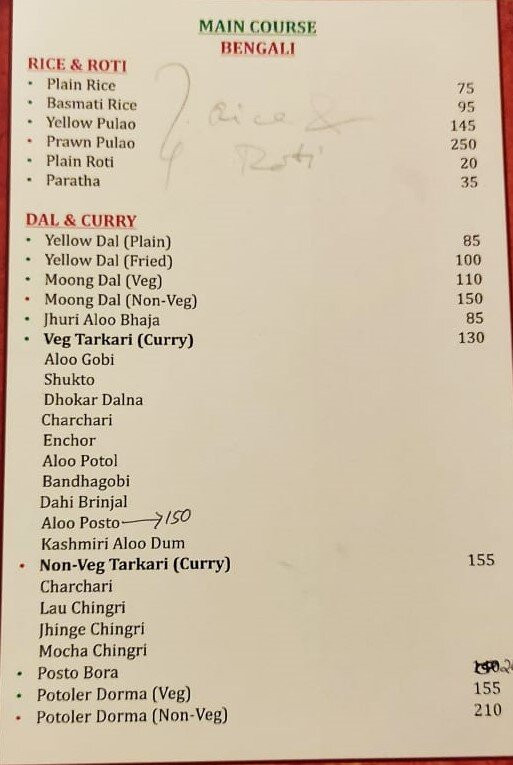 MAIN COURSE
BENGALI
RICE & ROTI
• Plain Rice 75
• Basmati Rice 95
• Yellow Pulao 145
• Prawn Pulao 250
• Plain Roti 20
• Paratha 35
Rice &
Roti
DAL & CURRY
• Yellow Dal (Plain) 85
• Yellow Dal (Fried) 100
• Moong Dal (Veg) 110
• Moong Dal (Non-Veg) 150
• Jhuri Aloo Bhaja 85
• Veg Tarkari (Curry) 130
Aloo Gobi
Shukto
Dhokar Dalna
Charchari
Enchor
Aloo Potol
Bandhagobi
Dahi Brinjal
Aloo Posto → 150
Kashmiri Aloo Dum
• Non-Veg Tarkari (Curry) 155
Charchari
Lau Chingri
Jhinge Chingri
Mocha Chingri
• Posto Bora
• Potoler Dorma (Veg) 155
• Potoler Dorma (Non-Veg) 210